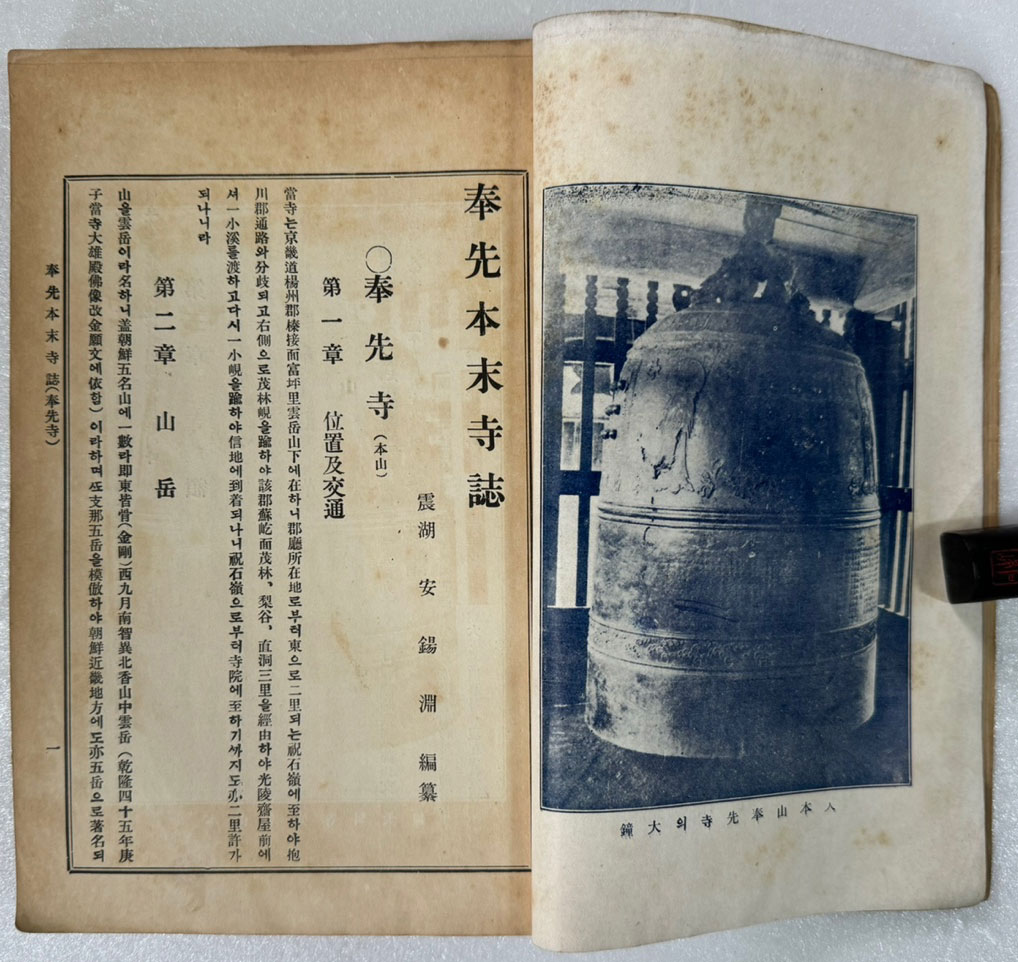 奉先本末寺誌
震湖 安 錫 淵 編纂
〇奉先寺(本山)
第一章 位置及交通
當寺는京畿道楊州郡榛接面富坪里雲岳山下에在하니郡廳所在地로부터東으로二里되는祝石嶺에至하야抱
川郡通路와分歧되고右側으로茂林峴을踰하야該郡蘇屹面茂林、梨谷、直洞三里을經由하야光陵齋屋前에
셔一小溪를渡하고다시一小峴을踰하야信地에到着되나니祝石嶺으로부터寺院에至하기까지도亦二里許가
되나니라
第二章 山岳
山을雲岳이라名하니盖朝鮮五名山에一數라即東皆骨(金剛)西九月南智異北香山中雲岳(乾隆四十五年庚
子當寺大雄殿佛像改金願文에依함)이라하며또支那五岳을模倣하야朝鮮近畿地方에도亦五岳으로著名되
奉先本末寺誌(奉先寺)
一
鐘大의寺先奉山本